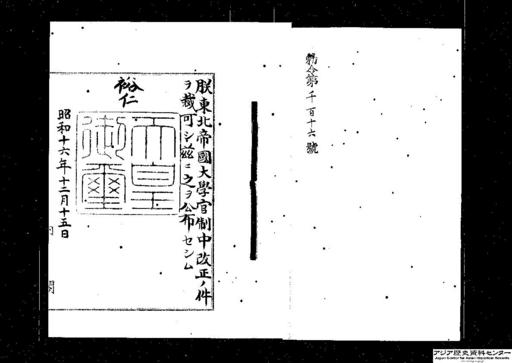 勅令第千百十六號
朕東北帝國大學官制中改正ノ件
ヲ裁可シ茲ニ之ヲ公布セシム
裕仁
天皇
御璽
昭和十六年十二月十五日
アジア歴史資料センター
Japan Center for Asian Historical Records